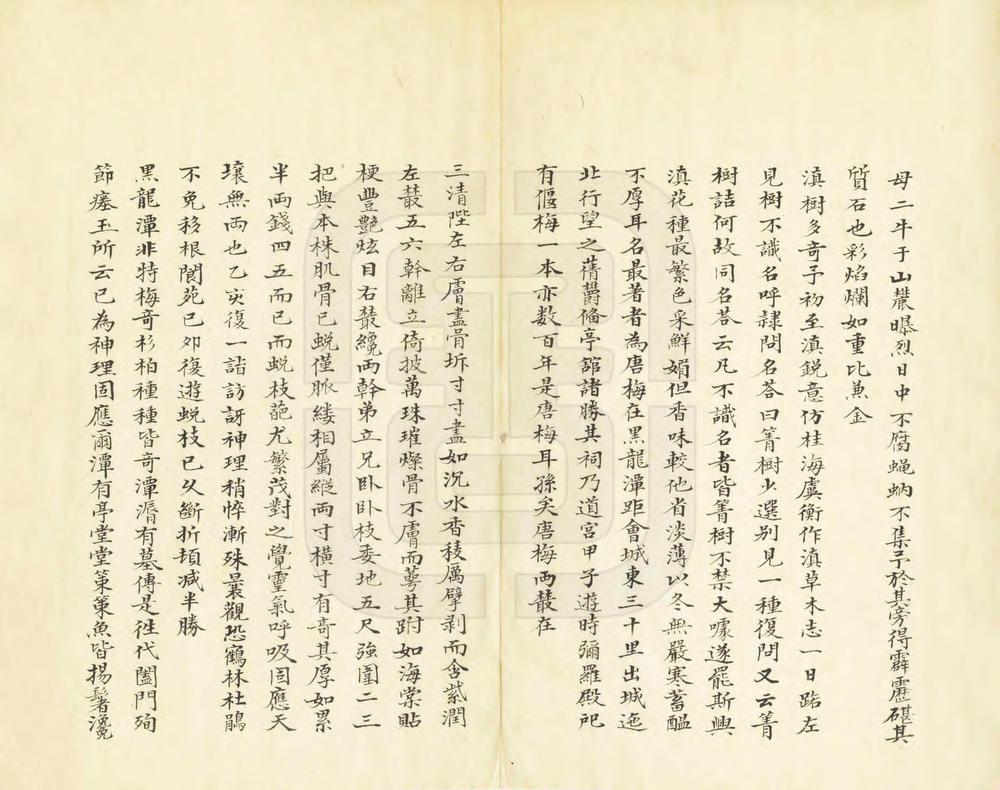 母二牛于山麓曝烈日中不腐蝇蚋不集予於其旁得霹靂碪其
質石也彩焰爛如重比兼金
滇樹多奇予初至滇銳意仿桂海虞衡作滇草木志一日路左
見樹不識名呼隸問名答曰箐樹少選別見一種復問又云箐
樹詰何故同名答云凡不識名者皆箐樹不禁大噱遂罷斯興
滇花種最繁色采鮮媚但香味較他省淡薄以冬無嚴寒蓄醞
不厚耳名最著者為唐梅在黑龍潭距會城東三十里出城迤
北行望之蒨欝翛亭舘諸勝其祠乃道宮甲子遊時彌羅殿圮
有偃梅一本亦数百年是唐梅耳孫矣唐梅両叢在
三清陛左右膚盡骨坼寸寸盡如沉水香稜厲擘剥而含紫潤
左叢五六幹離立倚披萬珠璀燦骨不膚而萼其跗如海棠貼
梗豐艷炫目右叢纔両幹弟立兄卧卧枝委地五尺強圍二三
把與本株肌骨已蜕僅脈縷相屬縱両寸横寸有奇其厚如累
半両錢四五而已而蜕枝葩尤繁茂對之覺靈氣呼吸固應天
壤無両也乙亥復一詣訪訝神理稍悴漸殊曩觀恐鶴林杜鵑
不免移根閬苑已夘復遊蜕枝已久斷折頓减半勝
黒龍潭非特梅竒杉柏種種皆竒潭漘有墓傳是徃代闔門殉
節瘗玉所云已為神理固應爾潭有亭堂堂策策魚皆揚鬐瀺